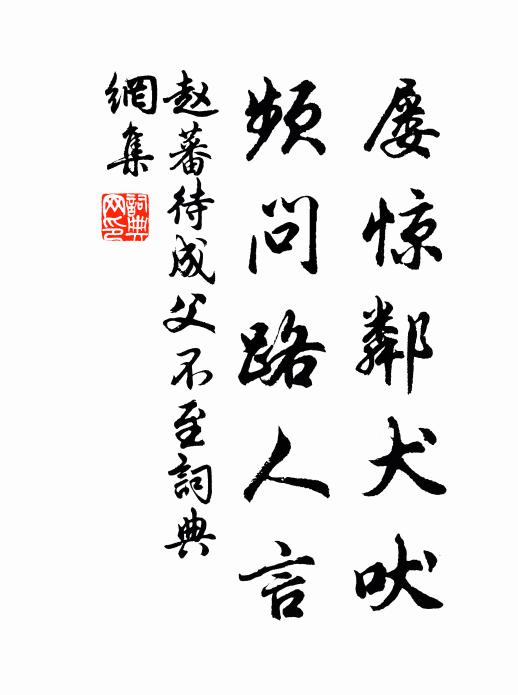 屡惊鄰犬吠
频问路人言
赵蕃待成父不至詞典
網集
詞典
网印